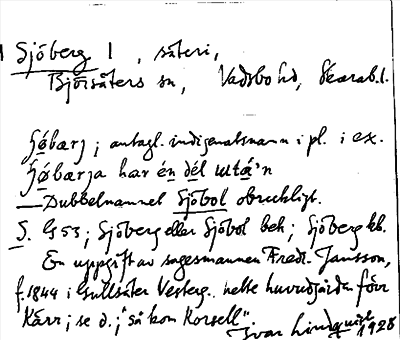 Sjöberg 1, säteri,
Björsäters sn, Vadsbo hd, Skarab. l.
sjöbærj; antagl. indigenatsnamn i pl. i ex.
sjöbærja har én dél utå'n
— Dubbelnamnet Sjöbol obrukligt.
S. G 53; Sjöberg eller Sjöbol bek; Sjöberg kb.
En uppgift av sagesmannen Fredr. Jansson,
f. 1844 i Gullsäter Vesterg. hette huvudgården förr
Kärr; se d.; "så kom Korsell".
Ivar Lindquist 1928